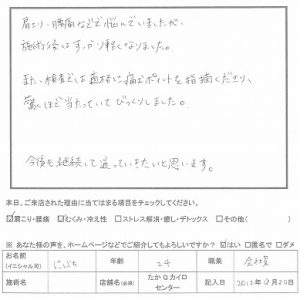 肩こり、腰痛などで悩んでいましたが、
施術後はすっかり軽くなりました。
また、検査では適格な痛むポイントを指摘くださり、
驚くほど当たっていてびっくりしました。
今後も継続して通っていきたいと思います。
本日、ご来店された理由に当てはまる項目をチェックしてください。
☑肩こり・腰痛 ☑むくみ・冷え性 □ストレス解消・癒し・デトックス □その他( )
※ あなた様の声を、ホームページなどでご紹介してもよろしいですか？ ☑はい □匿名で □ダメ
お名前 年齢 24 職業 会社員
(イニシャル可)
店舗名(必須) たかQカイロ 記入日 2012年9月20日
センター